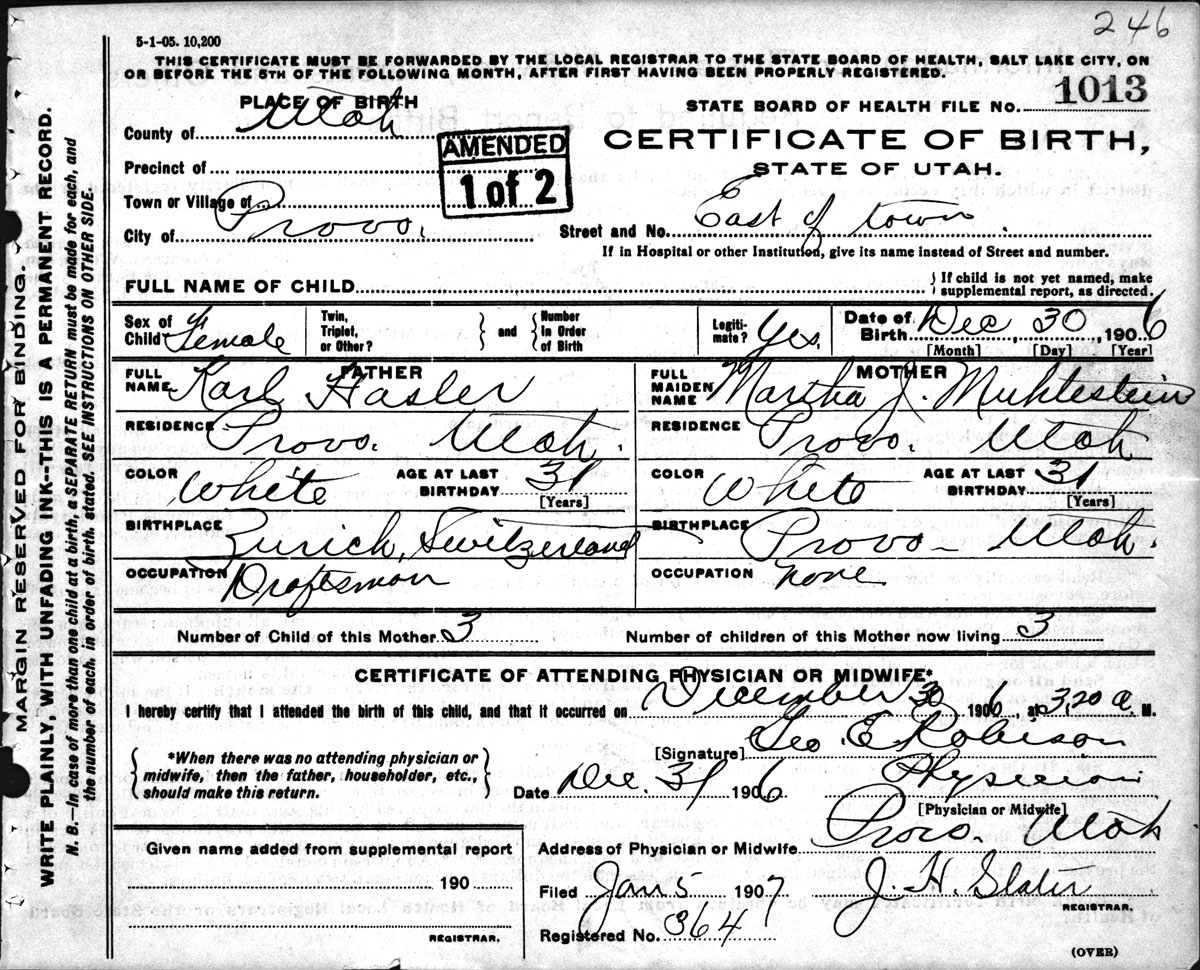 246
5-1-05. 10,200
THIS CERTIFICATE MUST BE FORWARDED BY THE LOCAL REGISTRAR TO THE STATE BOARD OF HEALTH, SALT LAKE CITY, ON
OR BEFORE THE 5TH OF THE FOLLOWING MONTH, AFTER FIRST HAVING BEEN PROPERLY REGISTERED.
PLACE OF BIRTH
STATE BOARD OF HEALTH FILE NO. 1013
County of Utah
CERTIFICATE OF BIRTH,
STATE OF UTAH.
AMENDED
1 of 2
Precinct of
Town or Village of
City of Provo.
Street and No. East of town
If in Hospital or other Institution, give its name instead of Street and number.
FULL NAME OF CHILD
If child is not yet named, make
supplemental report, as directed.
Sex of Child Female
Twin, Triplet, or Other?
and
Number in Order of Birth
Legitimate? Yes.
Date of Birth Dec 30, 1906
[Month] [Day] [Year]
FATHER
FULL NAME Karl Hasler
RESIDENCE Provo. Utah.
COLOR White
AGE AT LAST BIRTHDAY 31
[Years]
BIRTHPLACE Zurich, Switzerland
OCCUPATION Draftsman
MOTHER
FULL MAIDEN NAME Martha J. Muhlestein
RESIDENCE Provo. Utah
COLOR White
AGE AT LAST BIRTHDAY 31
[Years]
BIRTHPLACE Provo - Utah.
OCCUPATION none
Number of Child of this Mother 3
Number of children of this Mother now living 3
CERTIFICATE OF ATTENDING PHYSICIAN OR MIDWIFE*
I hereby certify that I attended the birth of this child, and that it occurred on December 30 1906, at 3,20 a. M.
*When there was no attending physician or
midwife, then the father, householder, etc.,
should make this return.
[Signature] Geo. E Robison
Date Dec. 31 1906
Physician
[Physician or Midwife]
Address of Physician or Midwife Provo. Utah
Given name added from supplemental report
190
REGISTRAR.
Filed Jan 5 1907
J. H. Slater
REGISTRAR.
Registered No. 364
(OVER)
MARGIN RESERVED FOR BINDING.
WRITE PLAINLY, WITH UNFADING INK--THIS IS A PERMANENT RECORD.
N. B.—In case of more than one child at a birth, a SEPARATE RETURN must be made for each, and
the number of each, in order of birth, stated. SEE INSTRUCTIONS ON OTHER SIDE.